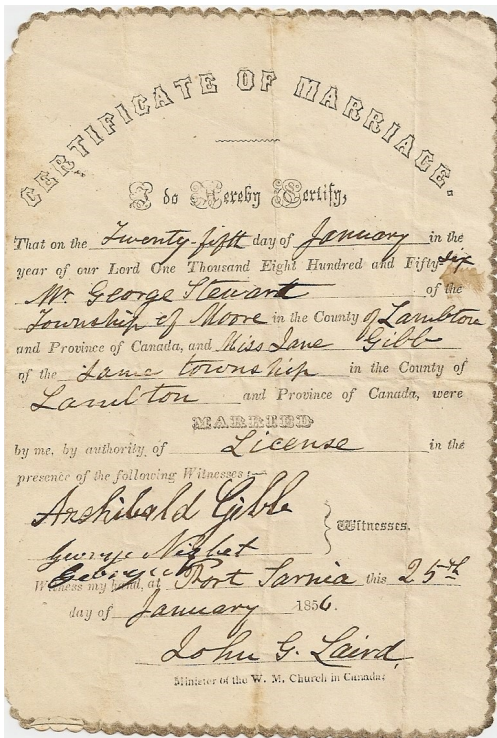 CERTIFICATE OF MARRIAGE.
I do Hereby Certify,
That on the Twenty-fifth day of January in the
year of our Lord One Thousand Eight Hundred and Fifty six
Mr George Stewart of the
Township of Moore in the County of Lambton
and Province of Canada, and Miss Jane Gibb
of the same township in the County of
Lambton and Province of Canada, were
MARRIED
by me, by authority of License in the
presence of the following Witnesses:—
Archibald Gibb
George Nisbet
Witnesses.
Witness my hand, at Port Sarnia this 25th
day of January 1856.
John G. Laird
Minister of the W. M. Church in Canada.